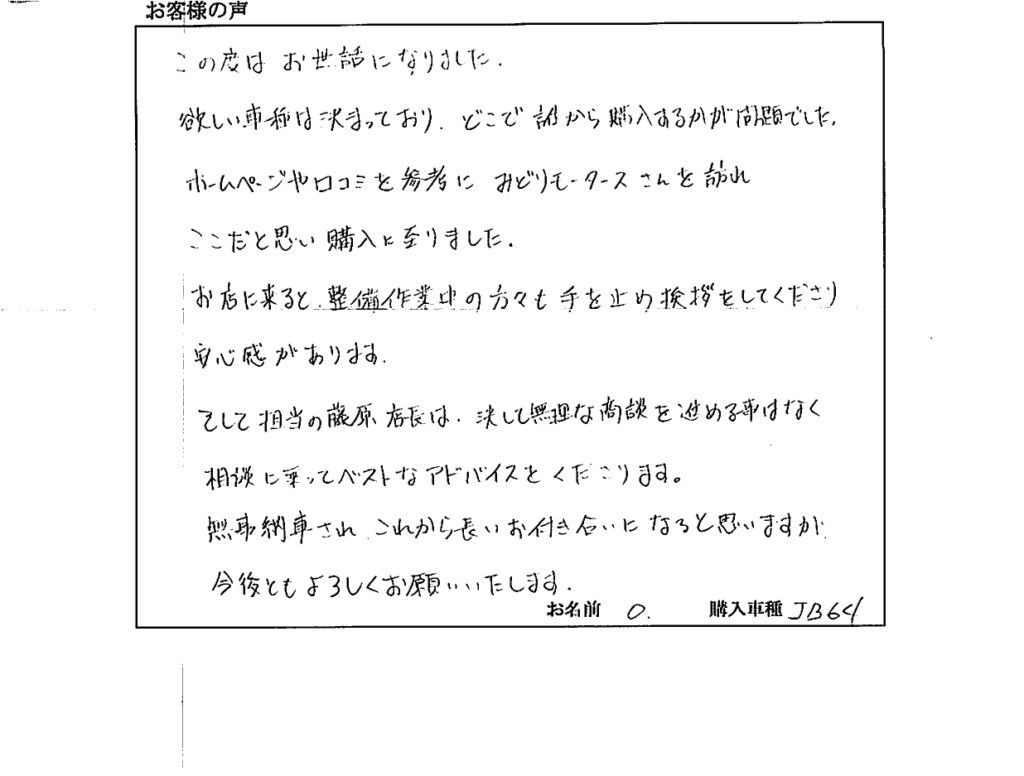 お客様の声
この度は お世話になりました.
欲しい車種は決まっており、どこで 誰から 購入するかが 問題でした.
ホームページや口コミを 参考に みどりモータース さんを 訪れ
ここだと思い 購入に至りました.
お店に来ると、整備作業中の方々も 手を止め 挨拶をしてくださり
安心感があります.
そして 担当の藤原 店長は、決して無理な商談を進める事はなく
相談に乗ってベストなアドバイスをくださります。
無事納車され これから長いお付き合いになると思いますが
今後ともよろしくお願いいたします.
お名前 O. 購入車種 JB64